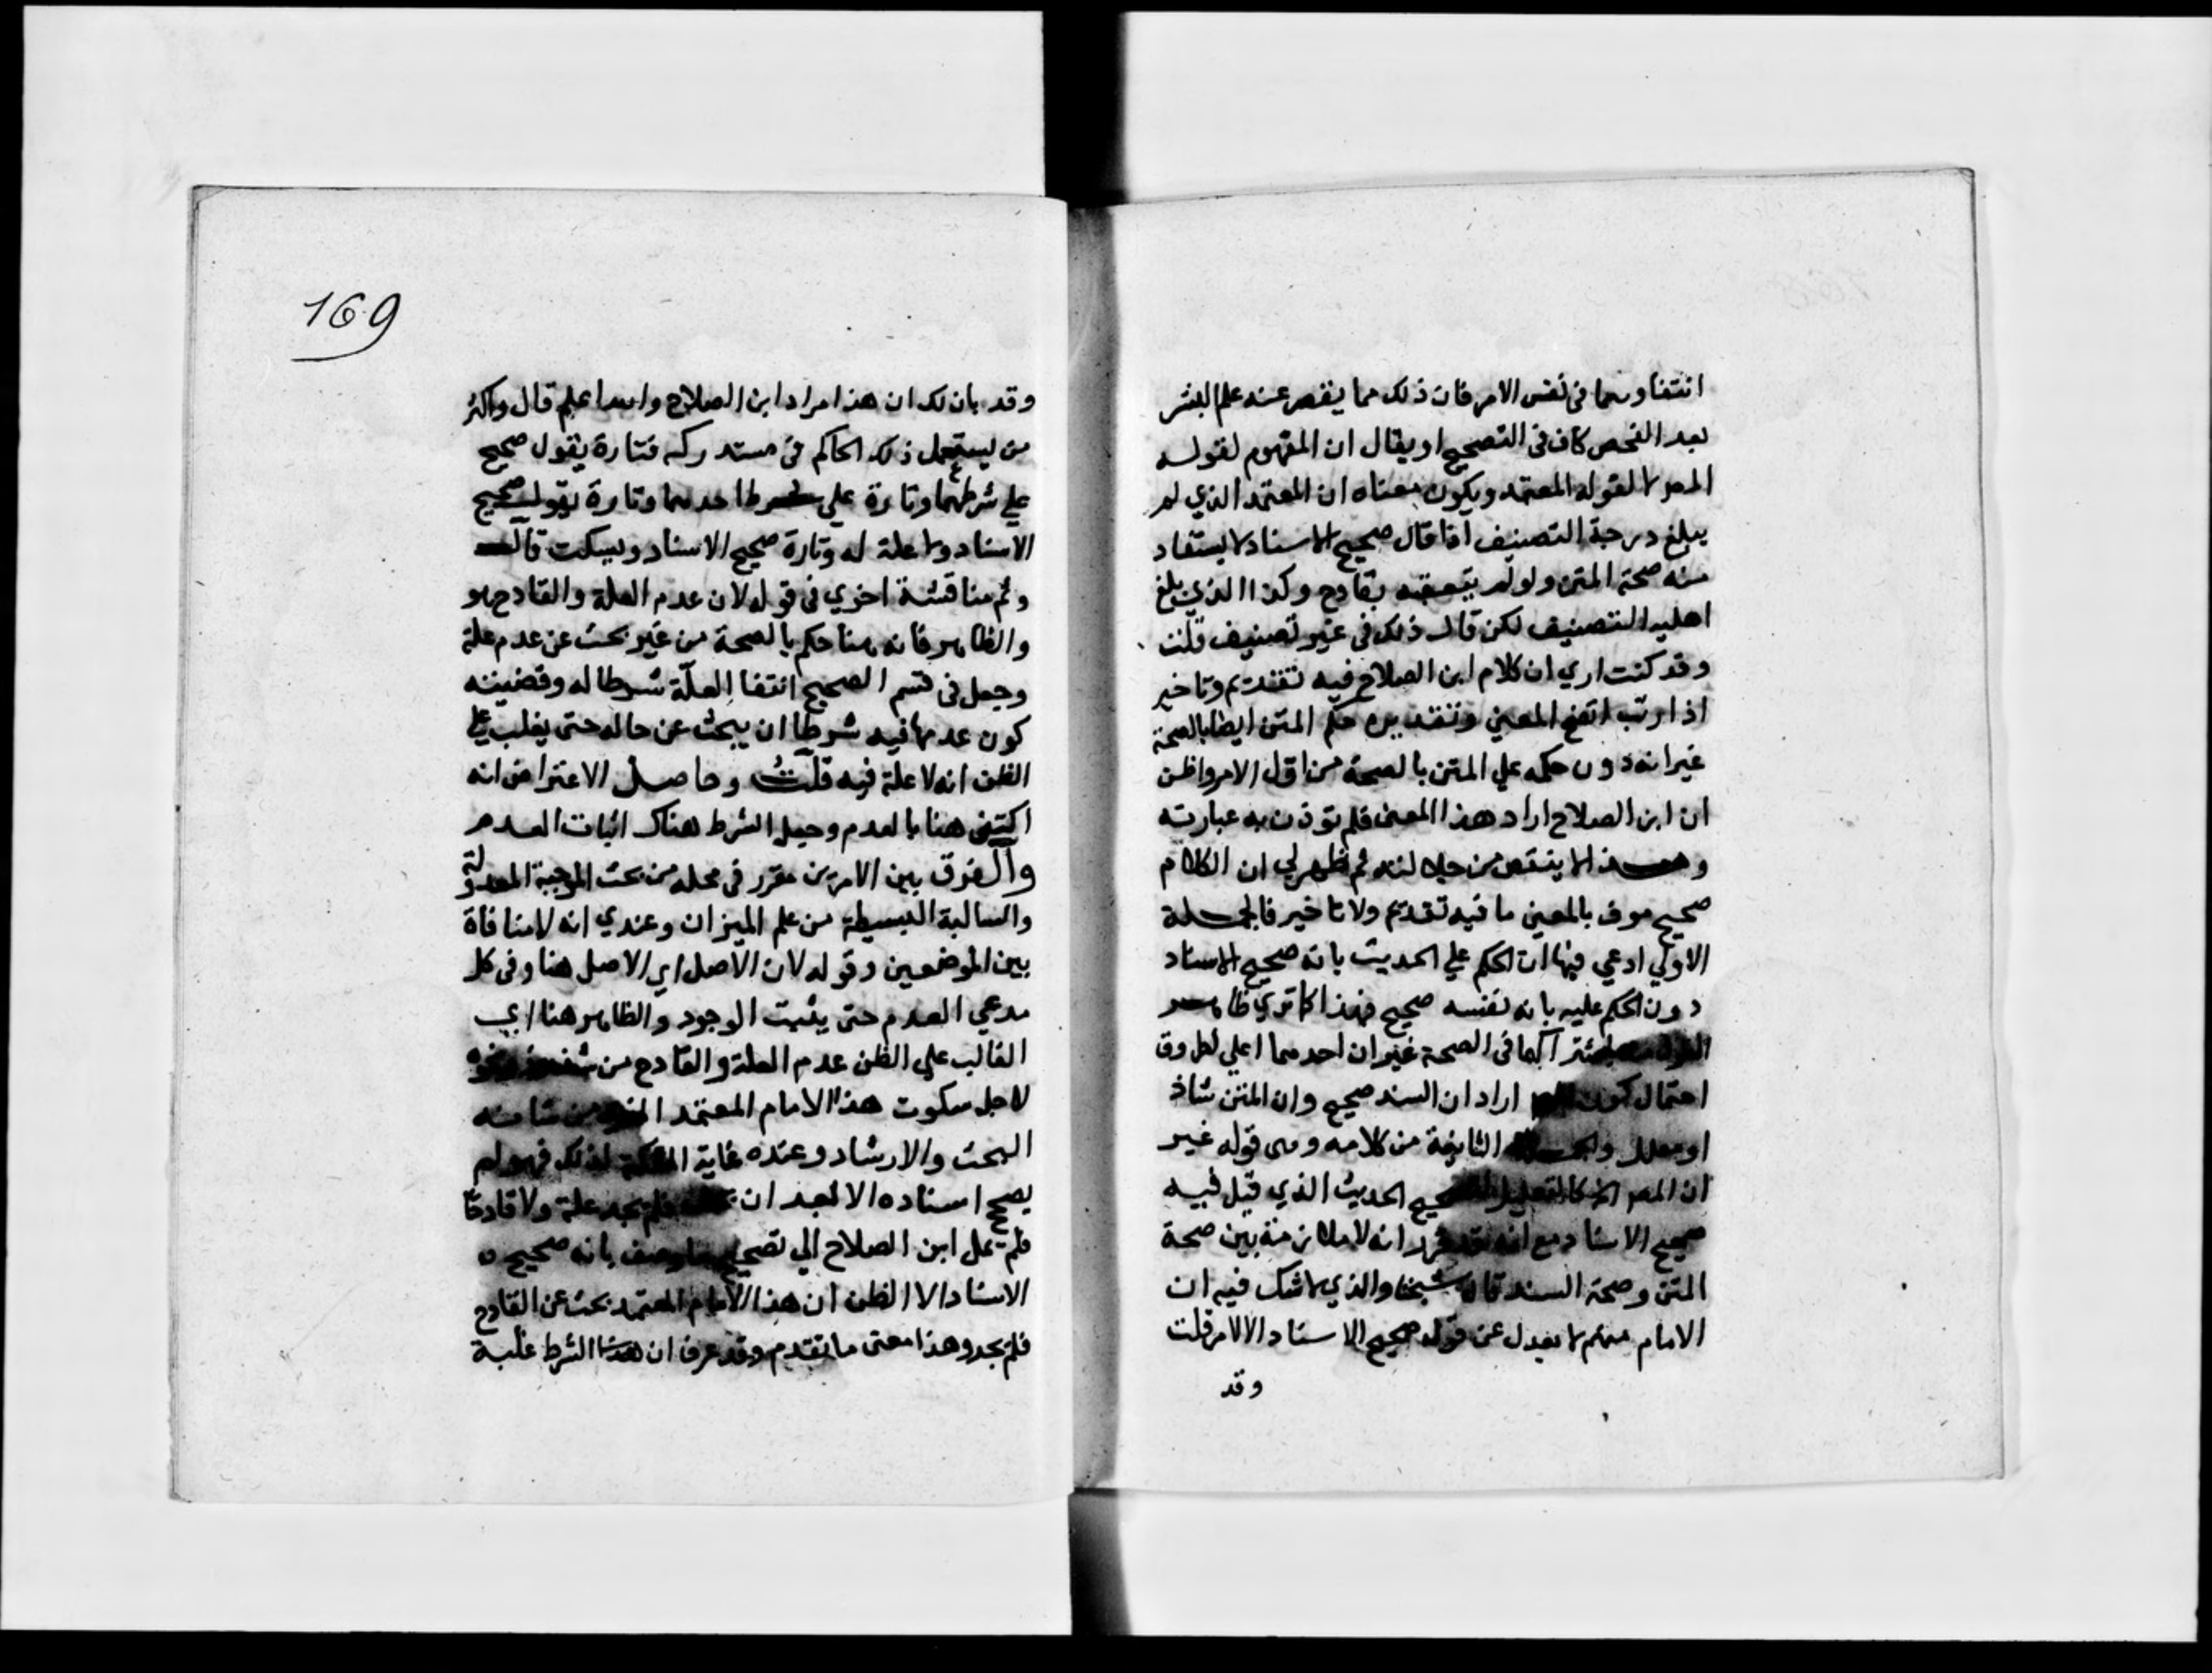 انتفاوهما فى نفس الامر فان ذلك مما يقصر عنه علم البشر
بعد الفحص كاف فى التصحيح او يقال ان المفهوم لقوله
المصر لا لقوله المعتمد ويكون معناه ان المعتمد الذي لم
يبلغ درجة التصنيف اذا قال صحيح الاسناد لا يستفاد
منه صحة المتن ولو لم يتعقبه بقادح وكذا الذي بلغ
اهلية التصنيف لكن قال ذلك فى غير تصنيف قلت
وقد كنت اري ان كلام ابن الصلاح فيه تقديم وتاخير
اذا رتب اتضح المعني وتقديره حكم المتن ايضا بالصحة
غير انه دون حكمه علي المتن بالصحة من اول الامر واظن
ان ابن الصلاح اراد هذا المعنى فلم توذن به عبارته
وهذا لا ينقص من جلالته ثم ظهر لي ان الكلام
صحيح موف بالمعني ما فيه تقديم ولا تاخير فالجملة
الاولي ادعي فيها ان الحكم علي الحديث بانه صحيح الاسناد
دون الحكم عليه بانه نفسه صحيح فهذا كما تري ظاهر
اشتراكهما فى الصحة غير ان احدهما اعلي لطروق
احتمال كون اراد ان السند صحيح وان المتن شاذ
او معلل الثانية من كلامه وهى قوله غير
ان المصر الخ كالتعليل الحديث الذي قيل فيه
صحيح الاسناد مع انه قد قرر انه لا ملازمة بين صحة
المتن وصحة السند قال شيخنا والذي لا شك فيه ان
الامام منهم لا يعدل عن قوله صحيح الاسناد الا لامر قلت
وقد
169
وقد بان لك ان هذا مراد ابن الصلاح والله اعلم قال واكثر
من يستعمل ذلك الحاكم فى مستدركه فتارة يقول صحيح
علي شرطهما وتارة علي شرط احدهما وتارة يقول صحيح
الاسناد ولا علة له وتارة صحيح الاسناد ويسكت قال
وثم مناقشة اخري فى قوله لان عدم العلة والقادح هو
والظاهر فانه هنا حكم بالصحة من غير بحث عن عدم علة
وجعل فى قسم الصحيح انتفا العلة شرطا له وقضيته
كون عدمها فيه شرطا ان يبحث عن حاله حتى يغلب علي
الظن انه لا علة فيه قلت وحاصل الاعتراض انه
اكتفى هنا بالعدم وجعل الشرط هناك اثبات العدم
والفرق بين الامرين مقرر فى محله من بحث الموجبة المعدولة
والسالبة البسيطة من علم الميزان وعندي انه لا منافاة
بين الموضعين وقوله لان الاصل اي الاصل هنا وفى كل
مدعي العدم حتى يثبت الوجود والظاهر هنا اي
الغالب علي الظن عدم العلة والقادح من
لاجل سكوت هذا الامام المعتمد من شانه
البحث والارشاد وعنده غاية لذلك فهو لم
يصحح اسناده الا بعد ان فلم يجد علة ولا قادحا
فلم علي ابن الصلاح الي تصحيح وصف بانه صحيح
الاسناد الا الظن ان هذا الامام المعتمد بحث عن القادح
فلم يجد وهذا معنى ما تقدم وقد عرف ان هذا الشرط غلبة